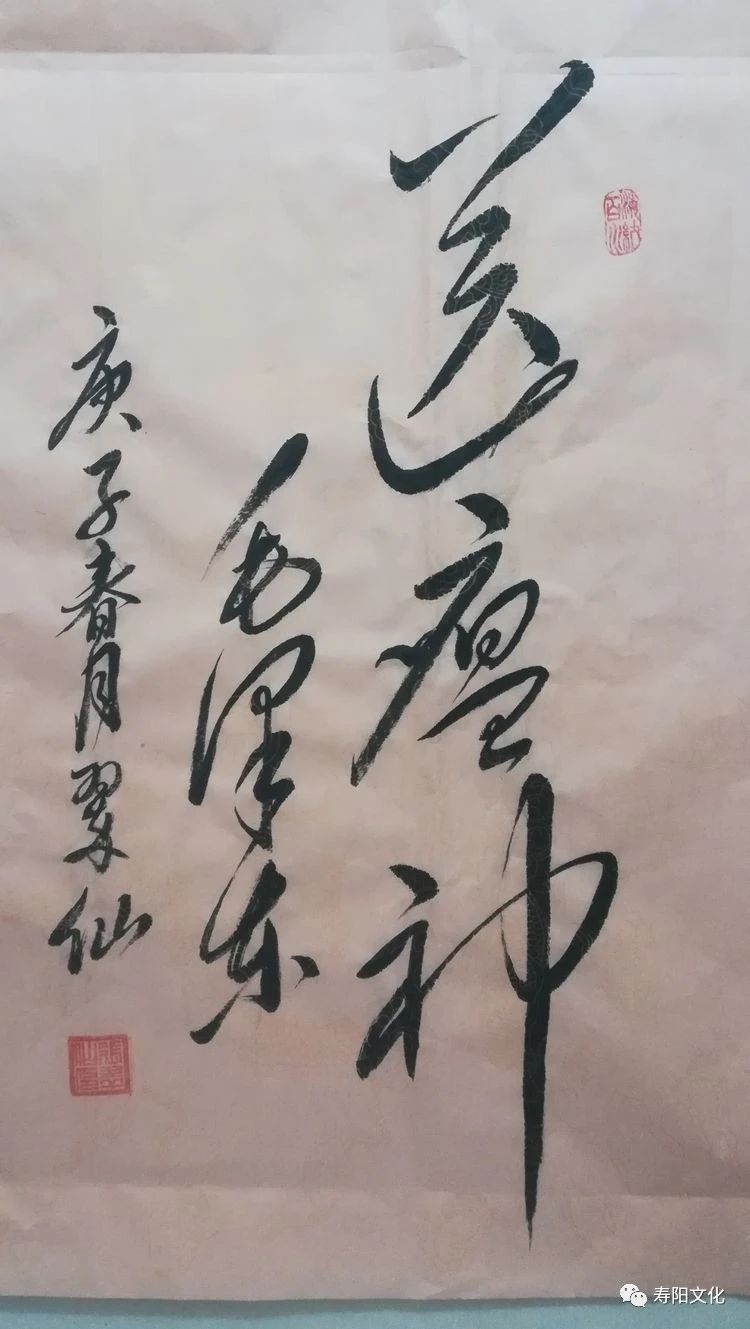 送瘟神
毛泽东
庚子春月翠仙
寿阳文化